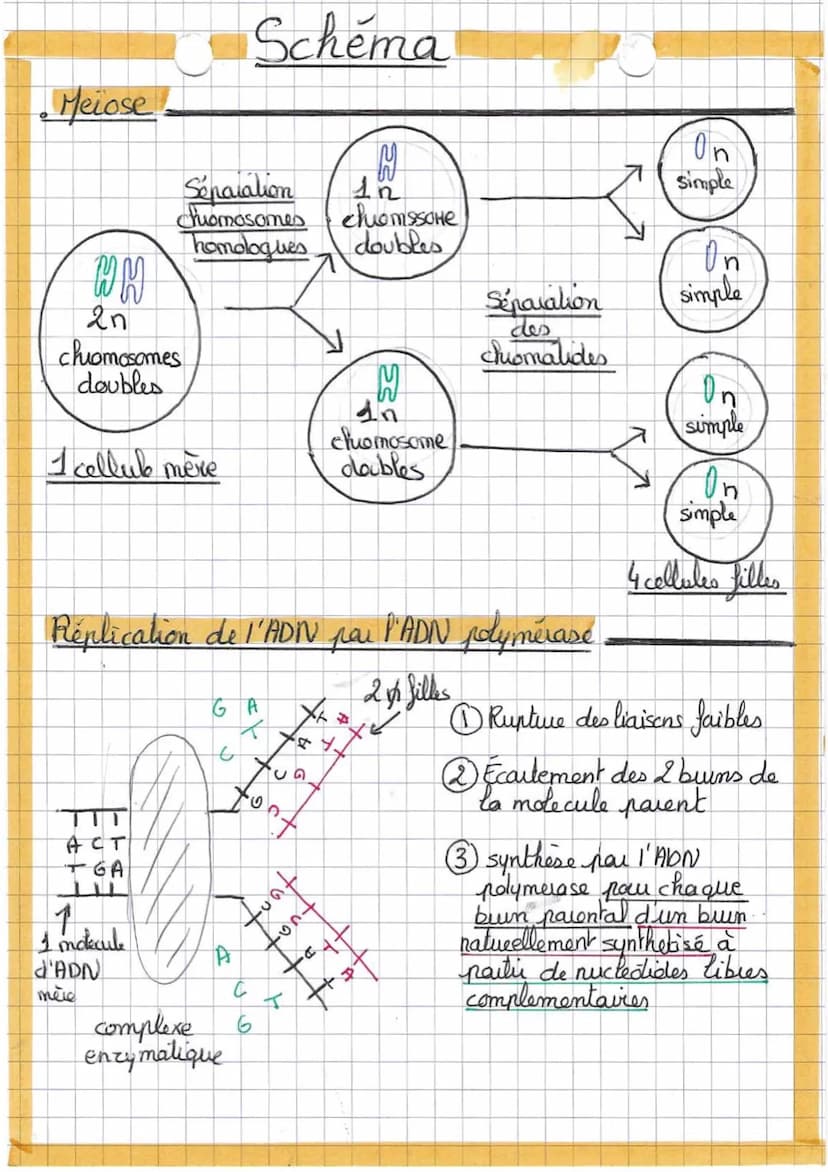 Schéma
. Meïose
Séparation
chromosomes
homologues
2n
chromosomes
doubles
1 cellule mère
1n
chromssome
doubles
1n
chromosome
doubles
Séparation
des
chromatides
n
simple
n
simple
n
simple
n
simple
4 cellules filles
Réplication de l'ADN par l'ADN polymérase
G A
T
C
T A
A T
C G
G C
filles
A C T
T G A
1 molecule
d'ADN
mère
complexe
enzymatique
A
C T
G
① Rupture des liaisons faibles
② Écartement des 2 brins de
la molecule parent
③ synthèse par l'ADN
polymerase pour chaque
brin parental d'un brin
naturellement synthetisé à
partir de nucleotides libres
complementaires